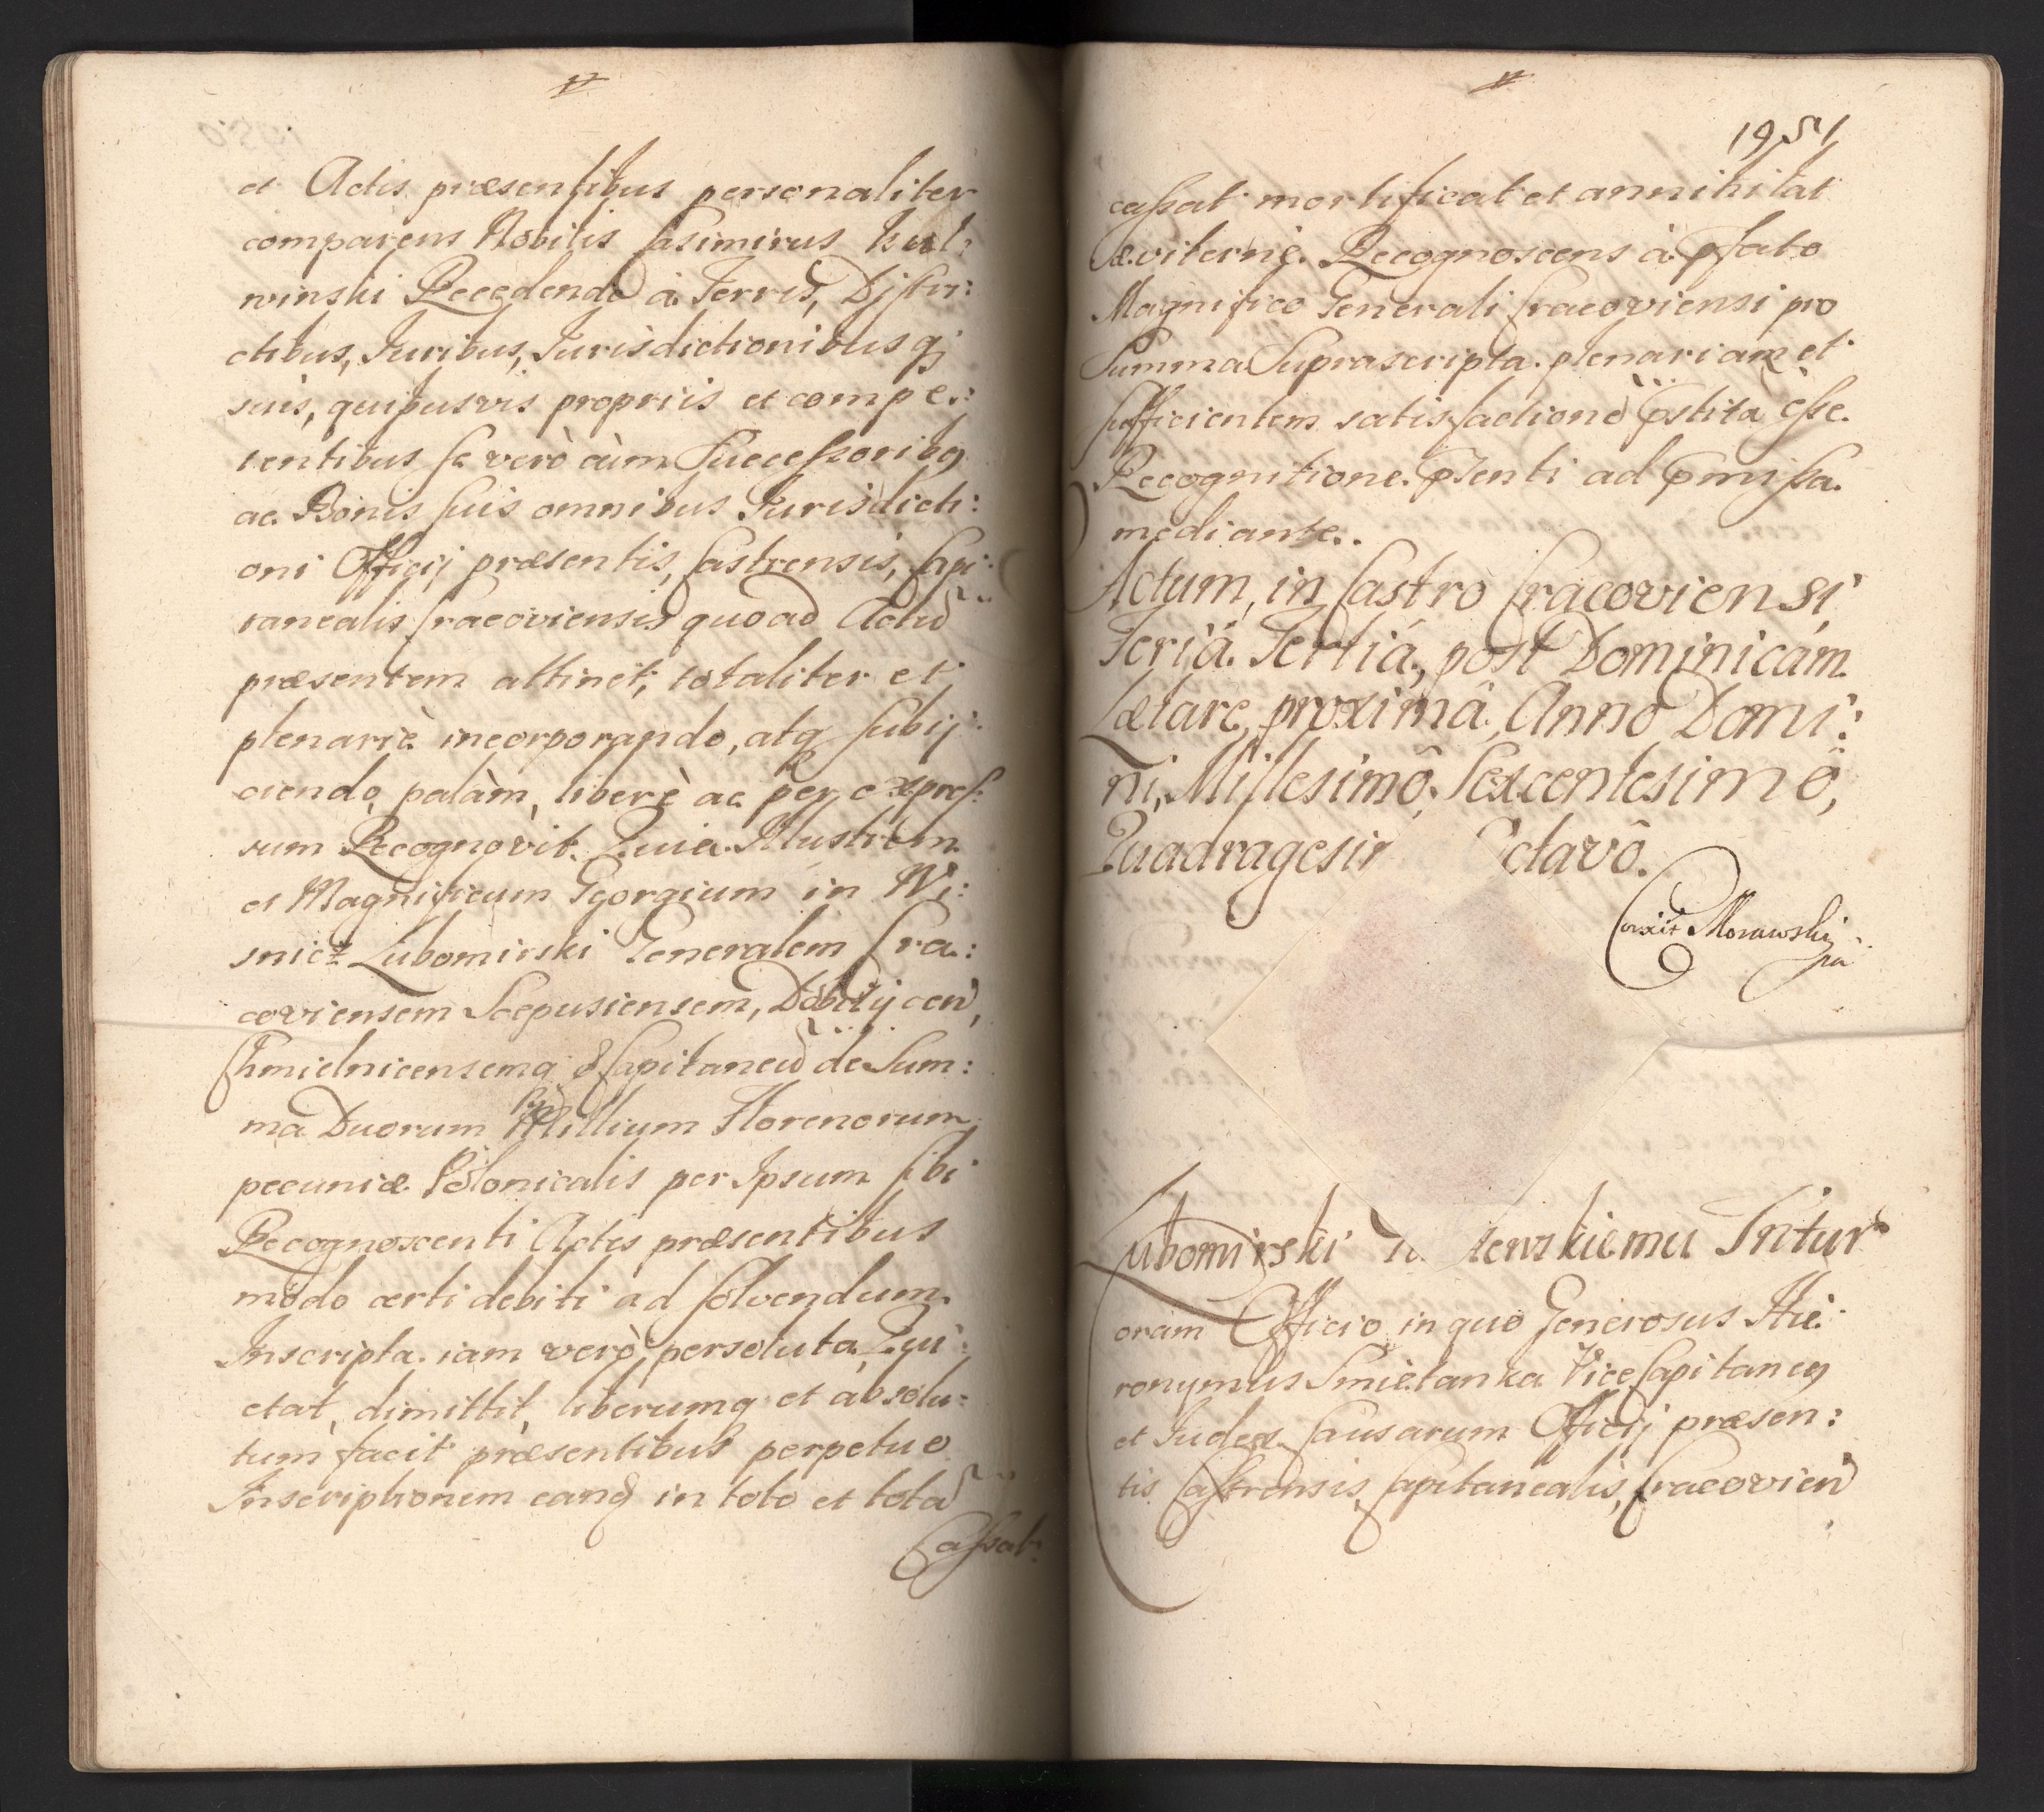 et Actis præsentibus personaliter
comparens Nobilis Casimirus Kul:
winski Recedendo à Terris, Distri:
ctibus, Iuribus, Iurisdictionibusq;
suis, quibusvis propriis et compe:
tentibus se verò cùm Successoribq
ac Bonis suis omnibus Iurisdicti:
oni Officij præsentis, Castrensis, Capi:
tanealis Cracoviensis quoad Actū
præsentem attinet, totaliter et
plenariè incorporando, atq subij:
ciendo, palàm, liberè ac per expres:
sum Recognovit. Quia Illustrem
et Magnificum Georgium in Wi:
snicz Lubomirski Generalem Cra:
coviensem Scepusiensem,
Chmielnicensemq Capitaneū de Sum:
ma Duorum Millium Florenorum
pecuniæ Polonicalis per Ipsum sibi
Recognoscenti Actis præsentibus
modo certi debiti ad solvendum
Inscripta iam verò persoluta Qui:
etat, dimittit, liberumq et absolu:
tum facit præsentibus perpetuo
Inscriptionem eandē in toto et totā
Cassat
1951
cassat mortificat et annihilat
æviternè. Recognoscens à pfato
Magnifico Generali Cracoviensi pro
Summa Suprascripta plenariam et
sufficientem satisfactionē pstitā esse.
Recognitione psenti ad pmissa
mediante.
Actum, in Castro Cracoviensi
Feriâ Tertiâ, post Dominicam
Lætare, proximâ, Anno Domi:
ni, Millesimô Sexcentesimô,
Quadragesi ctavô.
Corxit Morawski
Lubomirski ewskiemu Intur
oram Officio in quo Generosus Hie:
ronymus Smietanka Vice Capitaneq
et Iudex Causarum Officij præsen:
tis Castrensis Capitanealis, Cracovien